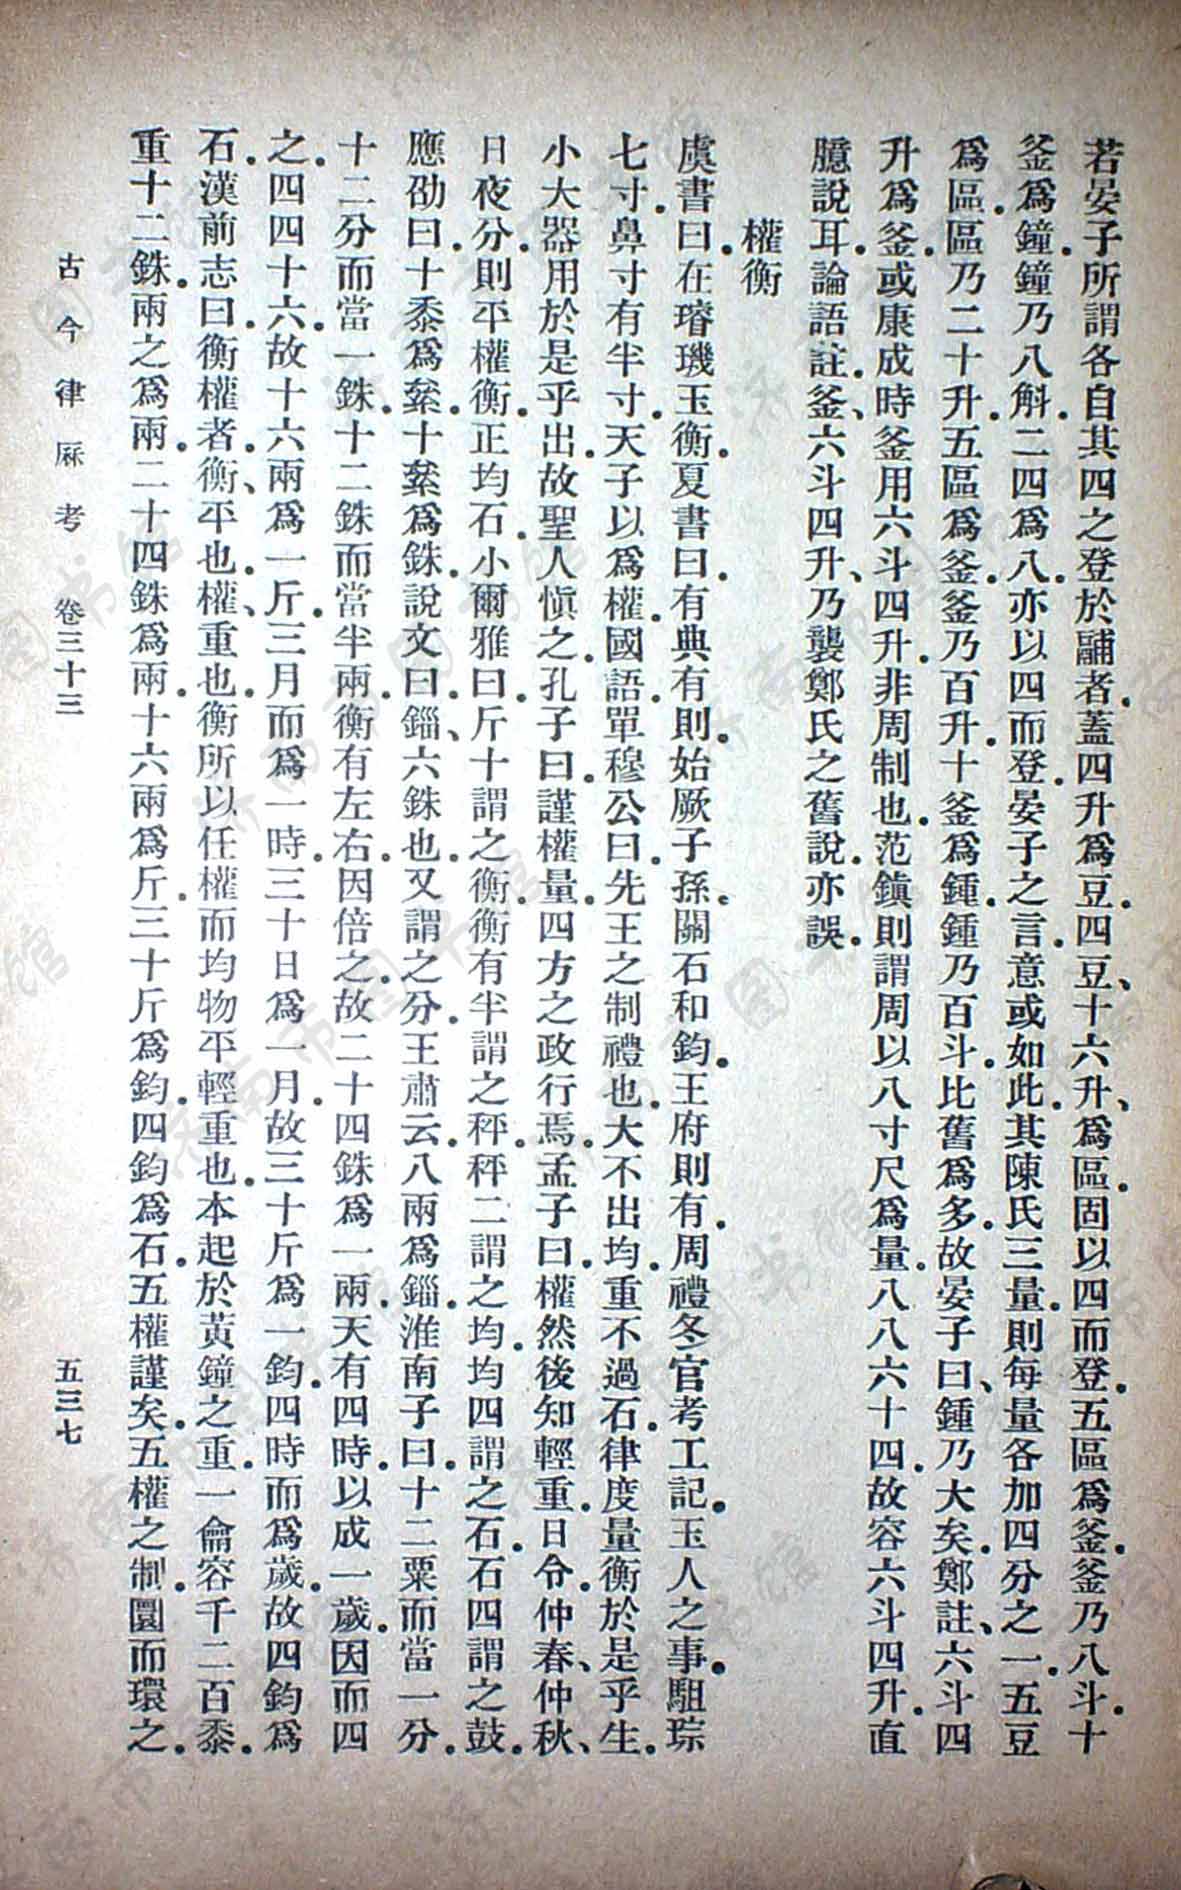 若晏子所謂各自其四之登於鬴者。蓋四升爲豆。四豆、十六升、爲區。固以四而登。五區爲釜。釜乃八斗。十
釜爲鐘。鐘乃八斛。二四爲八。亦以四而登。晏子之言。意或如此。其陳氏三量。則每量各加四分之一。五豆
爲區。區乃二十升。五區爲釜。釜乃百升。十釜爲鍾。鍾乃百斗。比舊爲多。故晏子曰、鍾乃大矣。鄭註、六斗四
升爲釜。或康成時釜用六斗四升。非周制也。范鎮則謂周以八寸尺爲量。八八六十四。故容六斗四升。直
臆說耳。論語註。釜、六斗四升、乃襲鄭氏之舊說。亦誤。
權衡
虞書曰。在璿璣玉衡。夏書曰。有典有則。始厥子孫。關石和鈞。王府則有。周禮冬官考工記。玉人之事。駔琮
七寸。鼻寸有半寸。天子以爲權。國語。單穆公曰。先王之制禮也。大不出均。重不過石。律度量衡於是乎生。
小大器用於是乎出。故聖人慎之。孔子曰。謹權量。四方之政行焉。孟子曰。權然後知輕重。日令。仲春、仲秋、
日夜分。則平權衡。正均石。小爾雅曰。斤十謂之衡。衡有半謂之秤。秤二謂之均。均四謂之石。石四謂之鼓。
應劭曰。十黍爲絫。十絫爲銖。說文曰。錙、六銖也。又謂之分。王肅云。八兩爲錙。淮南子曰。十二粟而當一分。
十二分而當一銖。十二銖而當半兩。衡有左右。因倍之。故二十四銖爲一兩。天有四時。以成一歲。因而四
之。四四十六。故十六兩爲一斤。三月而爲一時。三十日爲一月。故三十斤爲一鈞。四時而爲歲。故四鈞爲
石。漢前志曰。衡權者。衡、平也。權、重也。衡所以任權而均物平輕重也。本起於黃鐘之重。一龠容千二百黍。
重十二銖。兩之爲兩。二十四銖爲兩。十六兩爲斤。三十斤爲鈞。四鈞爲石。五權謹矣。五權之制。圜而環之。
古今律厤考 卷三十三 五三七